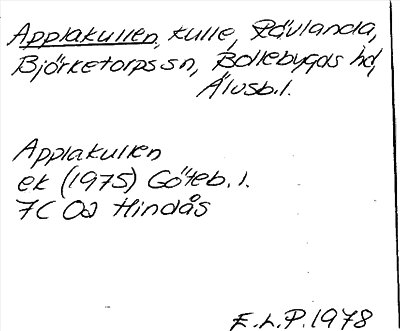 Applakullen, kulle, Rävlanda,
Björketorps sn, Bollebygds hd,
Älvsb.l.
Applakullen
ek (1975) Göteb.l.
7C 0d Hindås
E.L.P. 1978